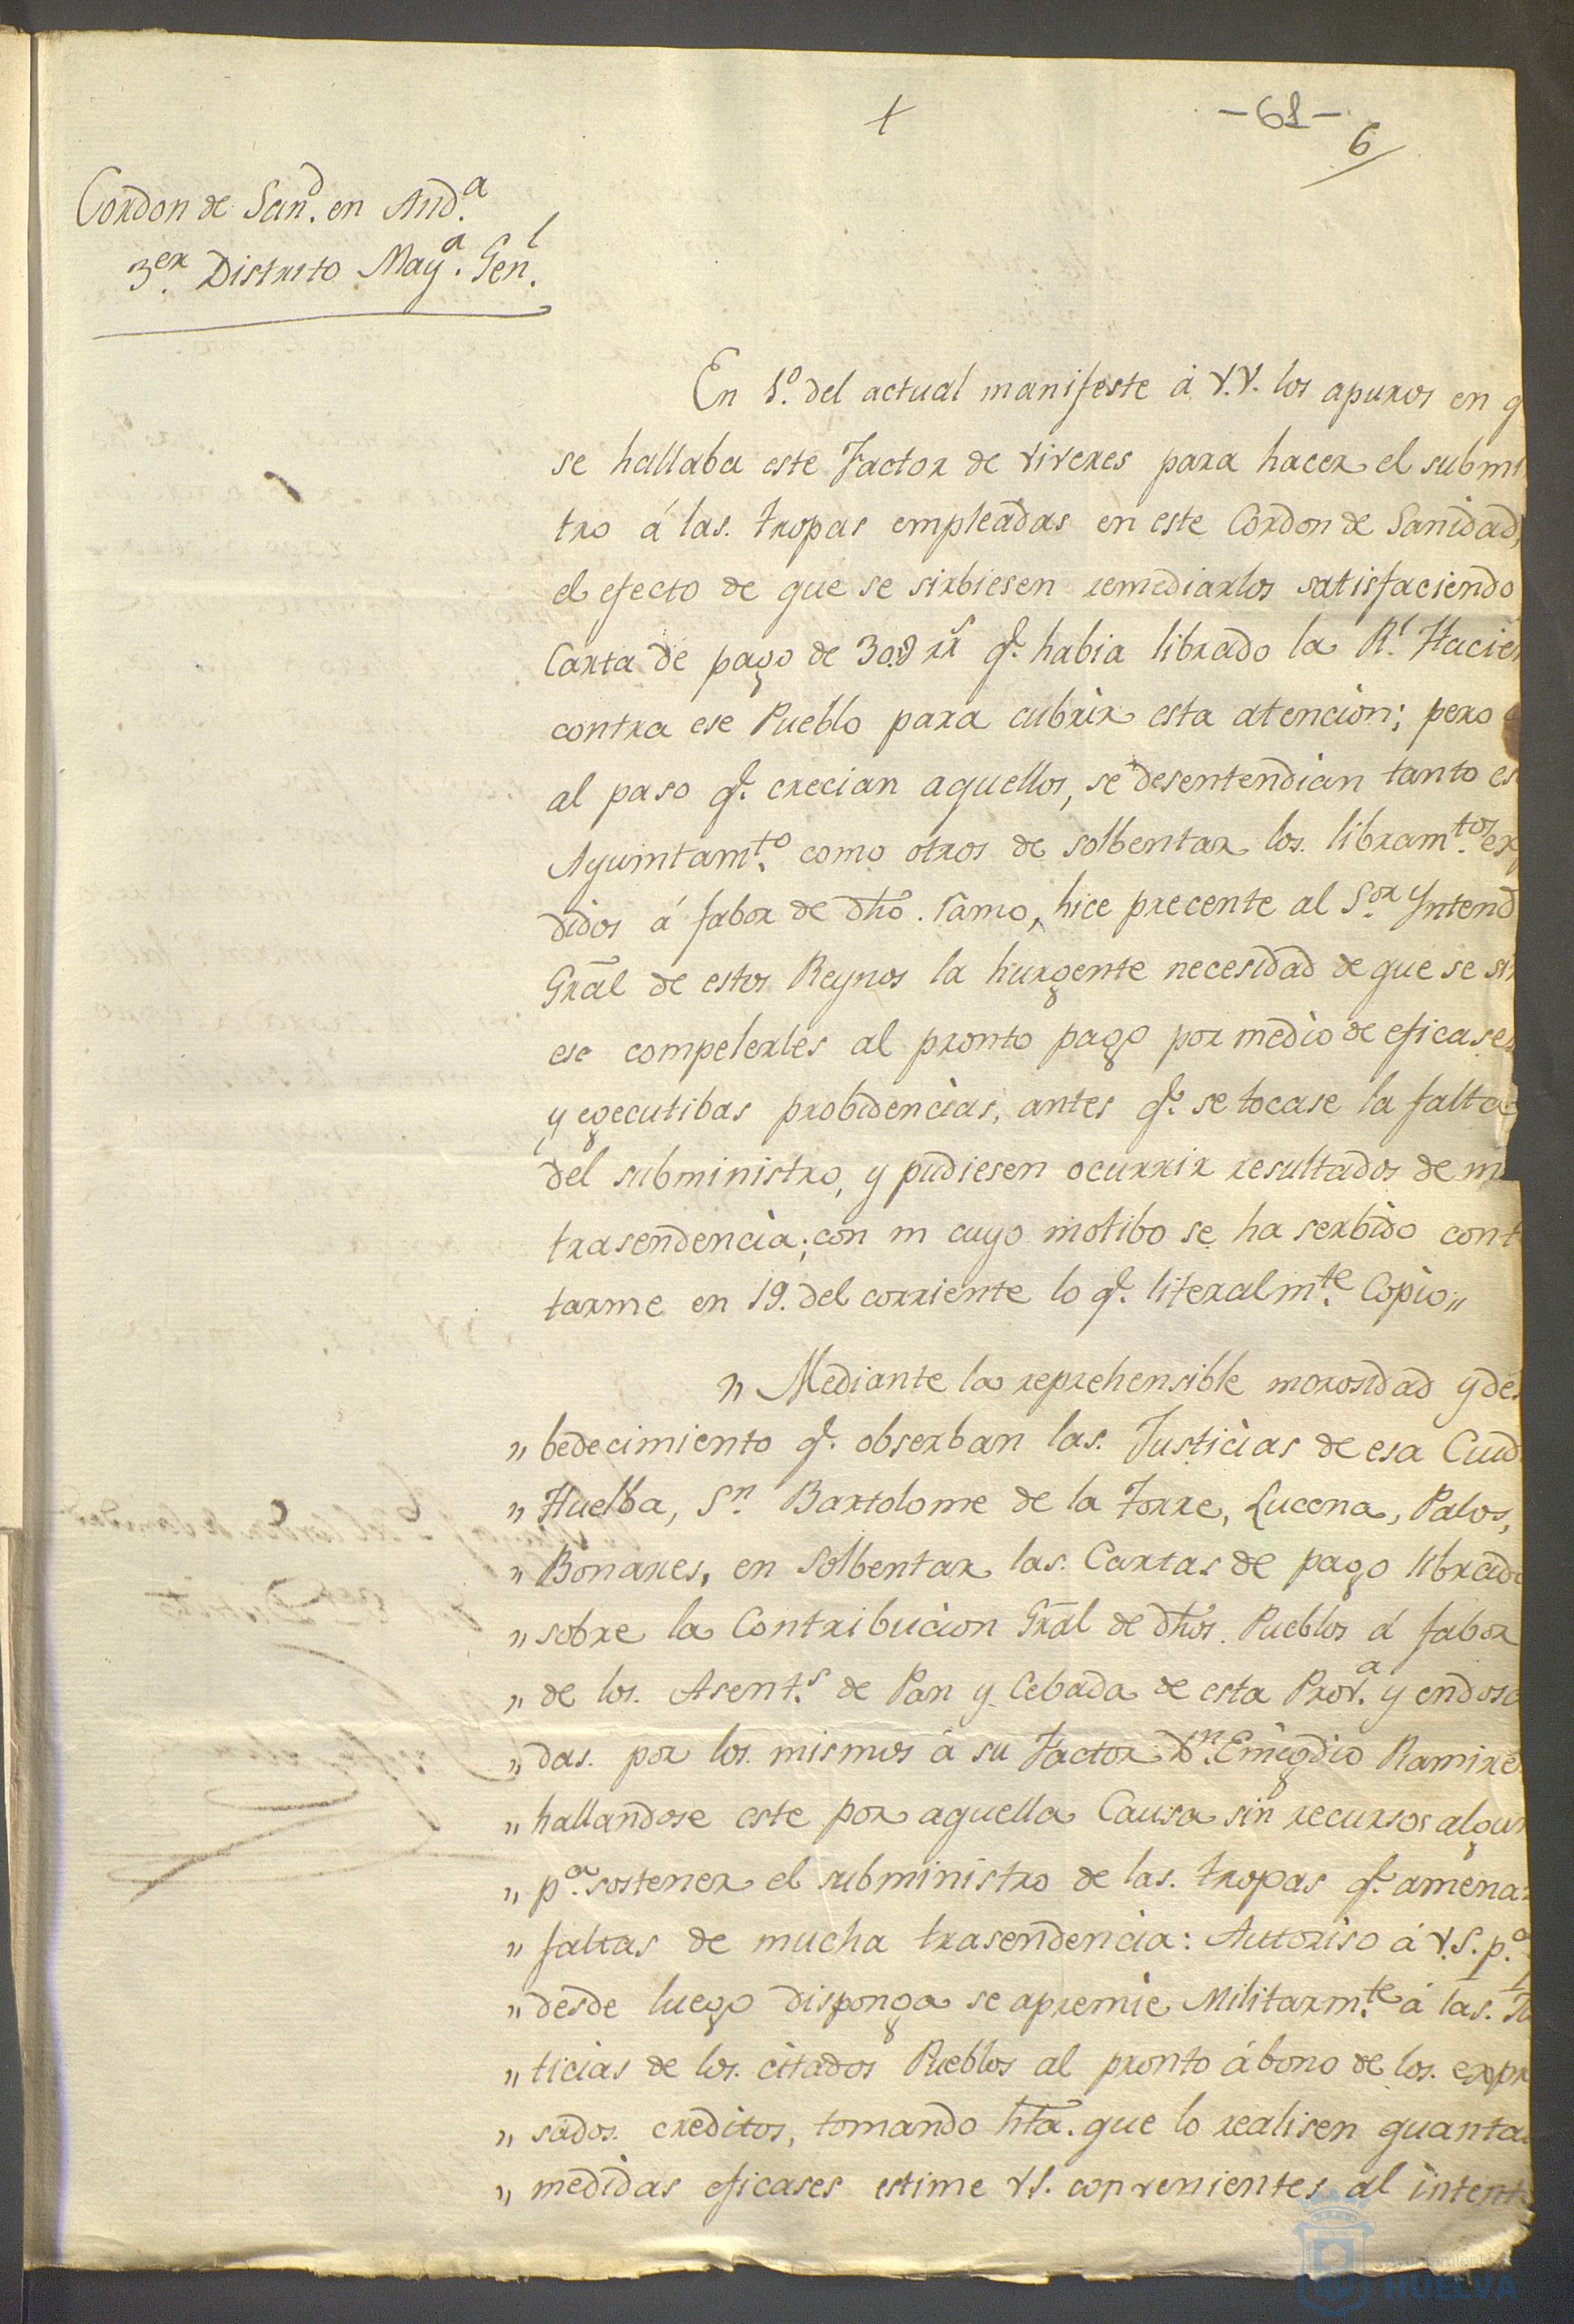 -61-
6
Cordon de San.d en And.a
3.er Distrito May.a Gen.l
En 1.o del actual manifeste á V.V. los apuros en q
se hallaba este Factor de viveres para hacer el submi
tro á las. tropas empleadas en este Cordon de Sanidad,
el efecto de que se sirbiesen remediarlos satisfaciendo
Carta de pago de 30.
 rr.s q.e habia librado la R.l Hacien
contra ese Pueblo para cubrir esta atencion; pero
al paso q.e crecian aquellos, se desentendian tanto es
Ayuintam.to como otros de solbentar los. libram.tos ex
didos á fabor de dho. ramo, hice precente al S.or Yntend
Gral de estos Reynos la hurgente necesidad de que se sir
ese compelerles al pronto pago por medio de eficases
y egecutibas probidencias, antes q.e se tocase la falta
del subministro, y pudiesen ocurrir resultados de m
trasendencia; con m cuyo motibo se ha serbido cont
tarme en 19. del corriente lo q.e literalm.te Copio,,
,, Mediante la reprehensible morosidad y des
,, bedecimiento q.e obserban las. Justicias de esa Ciud
,, Huelba, S.n Bartolome de la Torre, Lucena, Palos,
,, Bonares, en Solbentar las. Cartas de pago librado
,, sobre la Contribucion Gral de dhos. Pueblos á fabor
,, de los. Asent.s de Pan y Cebada de esta Prov.a y endosa
,, das. por los. mismos á su Factor D.n Emigdio Ramire
,, hallandose este por aquella Causa sin recursos algun
,, p.a sostener el subministro de las. tropas q.e amena
,, faltas de mucha trasendencia: Autoriso á V.S. p.a
,, desde luego disponga se apremie Militarm.te á las. Ju
,, ticias de los. citados Pueblos al pronto ábono de los. expr
,, sados. creditos, tomando hta. que lo realisen quanta
,, medidas eficases estime V.S. convenientes al intent
HUELVA